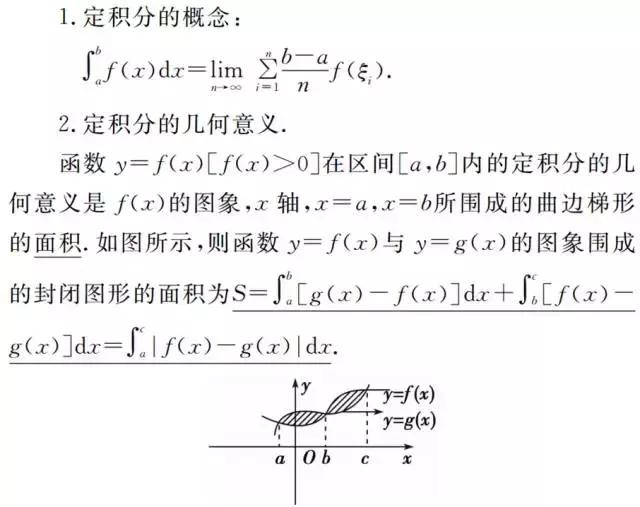 1.定积分的概念:
∫ₐᵇf(x)dx=lim_{n→∞} ∑_{i=1}^{n} (b-a)/n f(ξᵢ).
2.定积分的几何意义.
函数 y=f(x)[f(x)>0]在区间[a,b]内的定积分的几
何意义是 f(x)的图象,x 轴,x=a,x=b所围成的曲边梯形
的面积.如图所示,则函数 y=f(x)与 y=g(x)的图象围成
的封闭图形的面积为S=∫ₐᵇ[g(x)-f(x)]dx+∫_b^c[f(x)-
g(x)]dx=∫_a^c|f(x)-g(x)|dx.
y
y=f(x)
y=g(x)
a O b c x